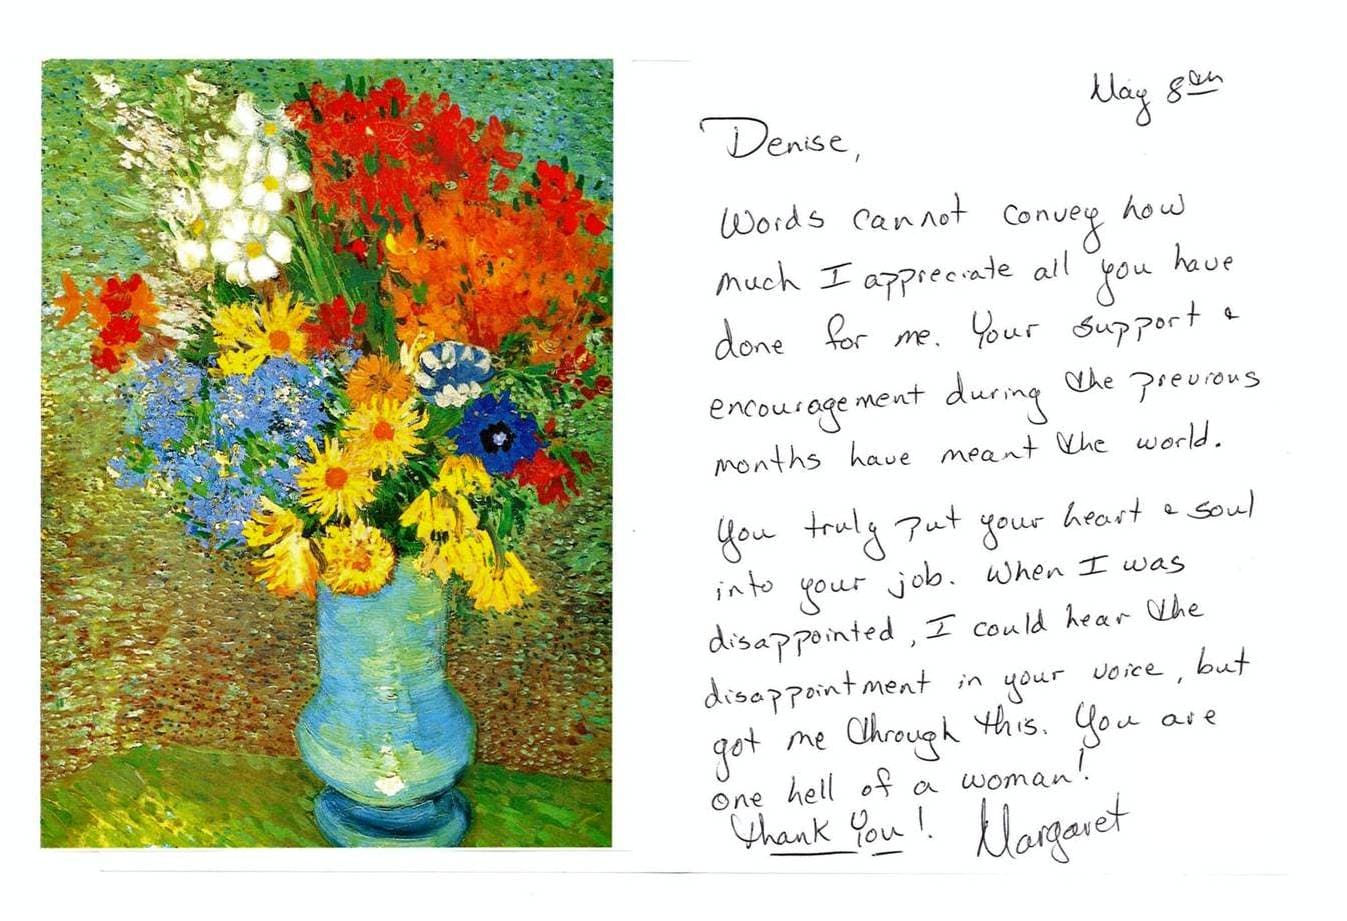 May 8th
Denise,
Words cannot convey how
much I appreciate all you have
done for me. Your support &
encouragement during the previous
months have meant the world.
You truly put your heart & soul
into your job. When I was
disappointed, I could hear the
disappointment in your voice, but
got me through this. You are
one hell of a woman!
Thank You! Margaret